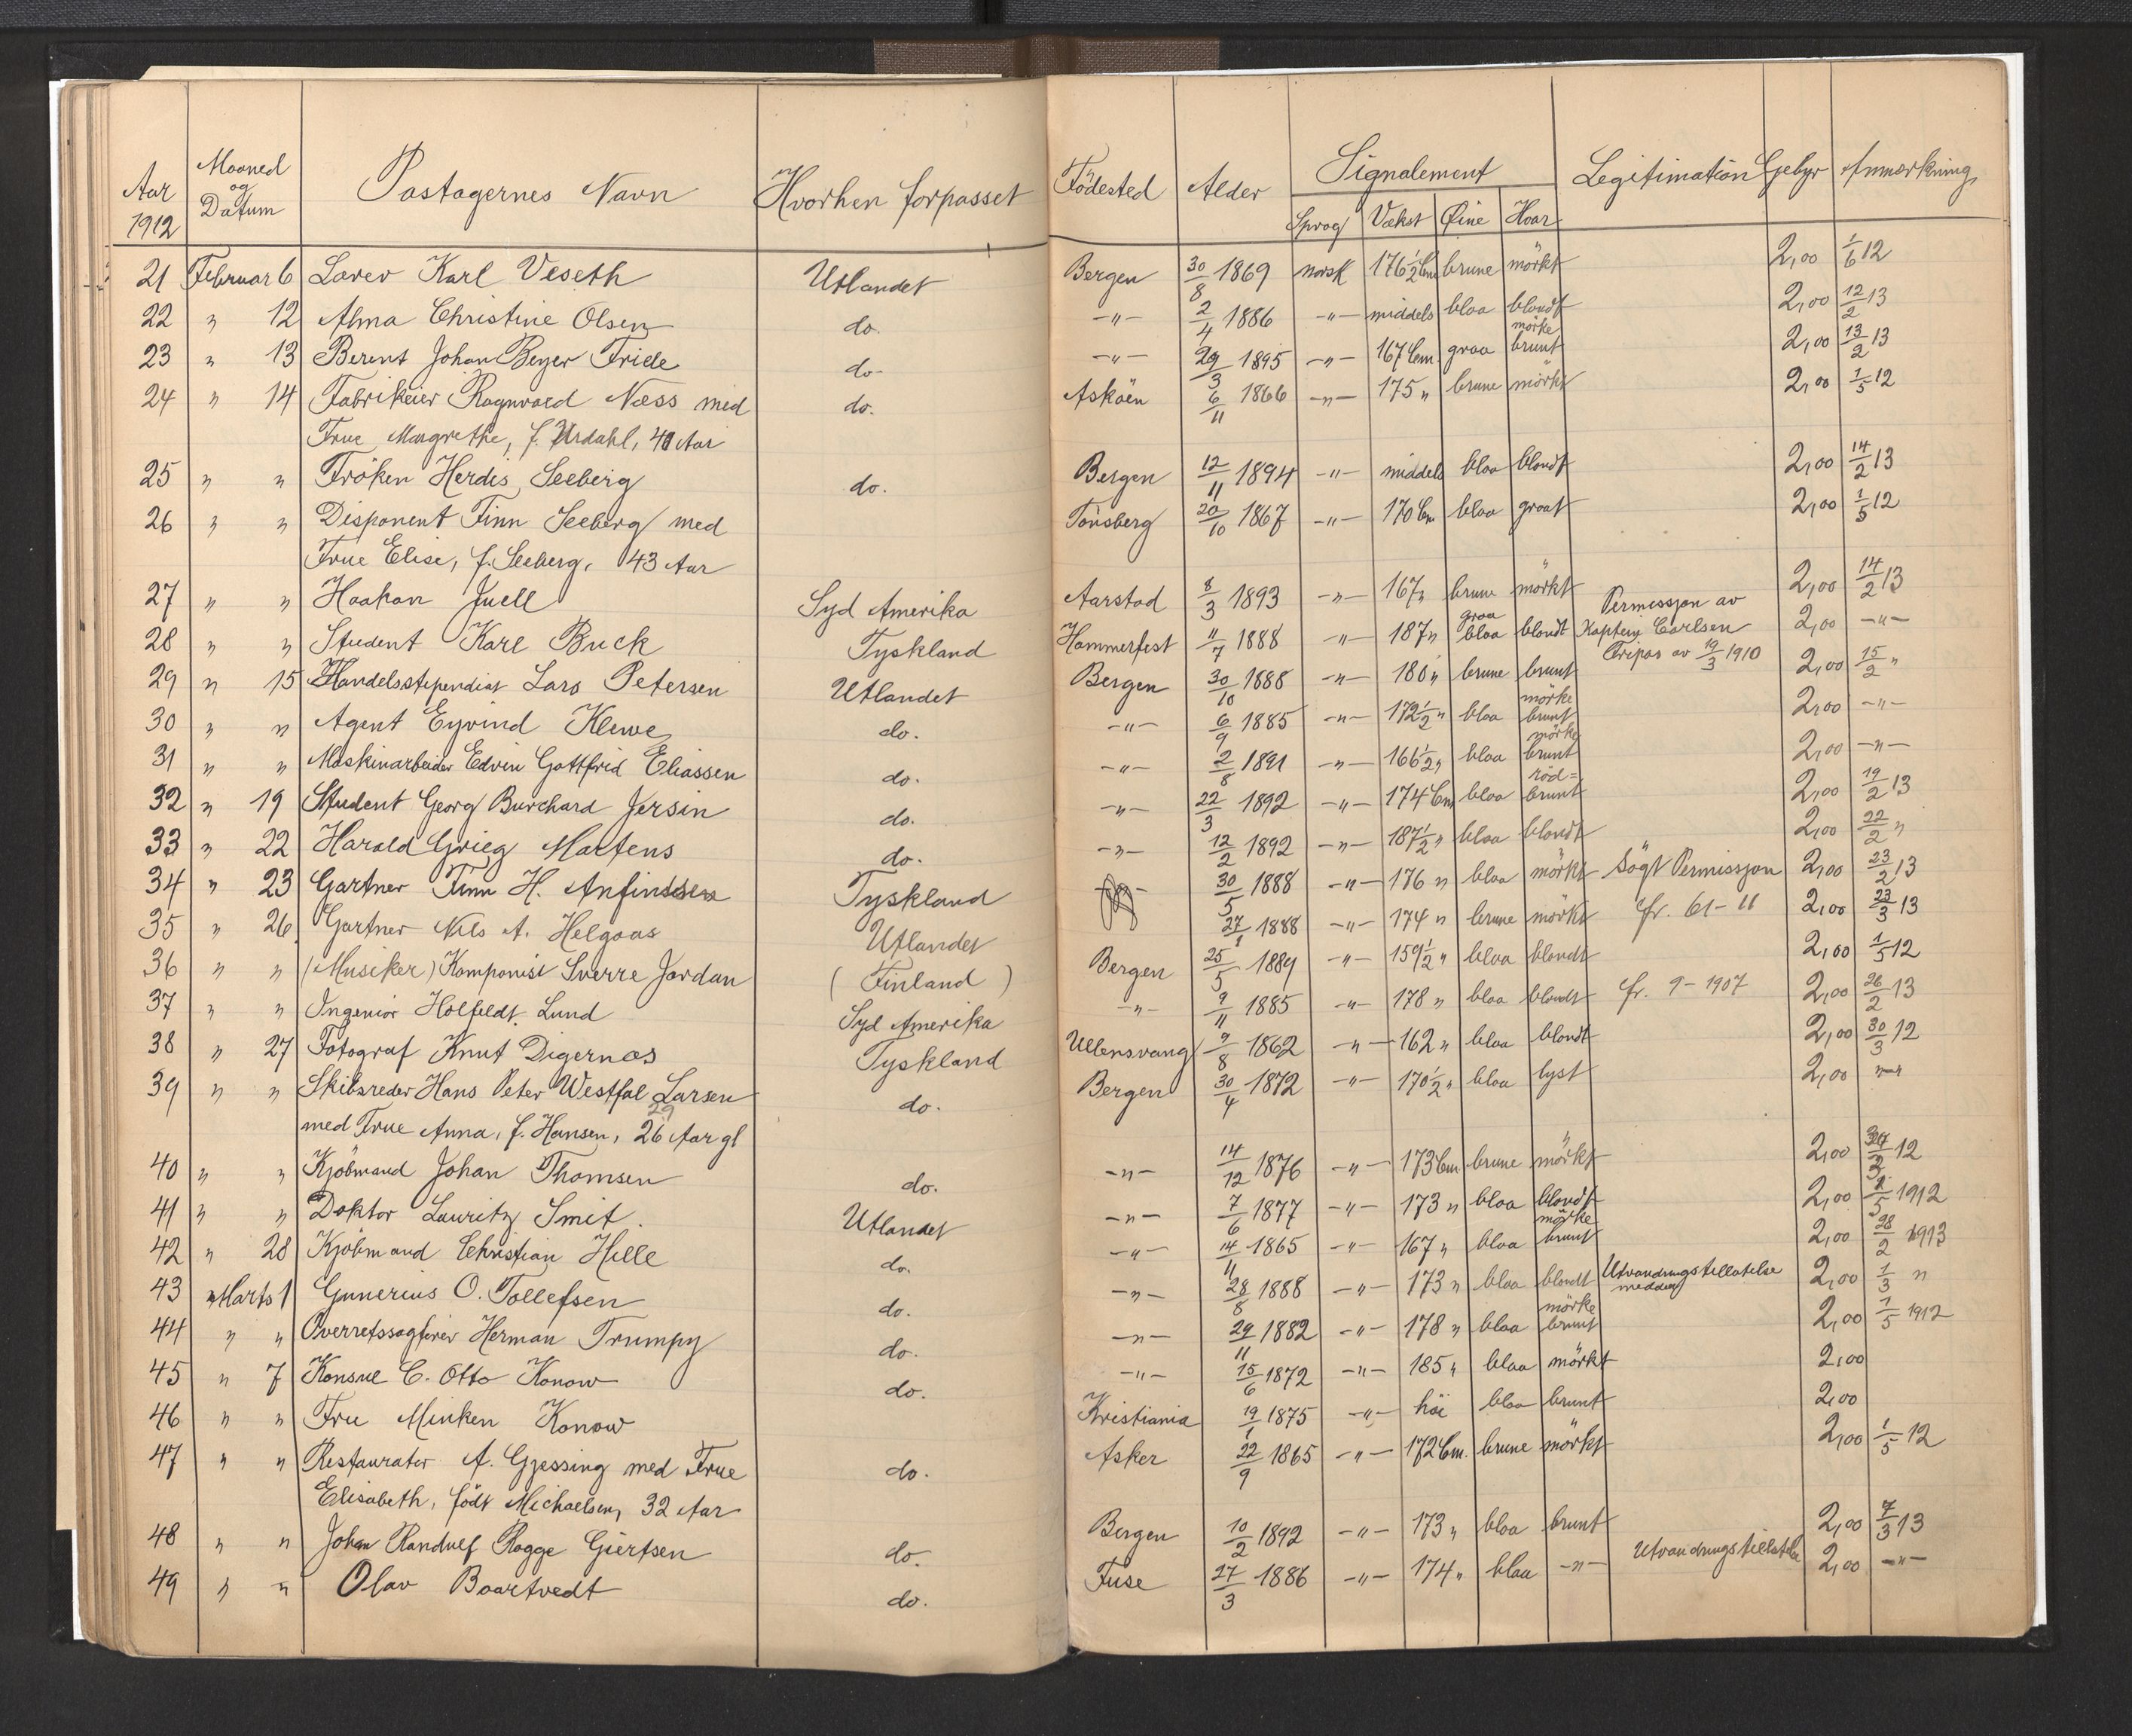 Aar 1912 Maaned og Datum Pastagernes Navn Hvorhen forpasset Födested Alder Signalement Legitimation Gebyr Anmærkning
Sprog Vækst Øine Haar
21 Februar 6 Lærer Karl Veseth Utlandet Bergen 30/8 1869 norsk 176 1/2 Cm brune mörkt 2,00 1/6 12
22 " 12 Alma Christine Olsen do. -"- 2/4 1886 -"- middels blaa blondt 2,00 12/2 13
23 " 13 Berent Johan Beyer Friele do. -"- 29/3 1895 -"- 167 Cm. graa mörke brunt 2,00 13/2 13
24 " 14 Fabrikeier Ragnvard Næss med do. Asköen 6/11 1866 -"- 175 " brune mörkt 2,00 1/5 12
Frue Margrethe, f. Urdahl, 40 Aar
25 " " Fröken Herdis Seeberg do. Bergen 12/11 1894 -"- middels blaa blondt 2,00 14/2 13
26 " " Disponent Finn Seeberg med Tönsberg 20/10 1867 -"- 170 Cm blaa graat 2,00 1/5 12
Frue Elise, f. Seeberg, 43 Aar
27 " " Haakon Juell Syd Amerika Aarstad 8/3 1893 -"- 167 " brune mörkt 2,00 14/2 13
28 " " Student Karl Buck Tyskland Hammerfest 11/7 1888 -"- 187 " graa blaa blondt Permissjon av Kaptein Carlsen 2,00 -"-
av 19/3 1910
29 " 15 Handelsstipendiat Lars Petersen Utlandet Bergen 30/10 1888 -"- 180 " brune brunt 2,00 15/2 "
30 " " Agent Eyvind Klewe do. -"- 6/9 1885 -"- 172 1/2 " blaa mörke brunt 2,00 -"-
31 " " Maskinarbeider Edvin Gottfrid Eliassen do. -"- 2/8 1891 -"- 166 1/2 " blaa mörke brunt 2,00 -"-
32 " 19 Student Georg Burchard Jersin do. -"- 22/3 1892 -"- 174 Cm blaa röd= brunt 2,00 19/2 13
33 " 22 Harald Grieg Martens do. -"- 12/2 1892 -"- 187 1/2 " blaa blondt 2,00 22/2 "
34 " 23 Gartner Finn H. Anfindsen Tyskland 30/5 1888 -"- 176 " blaa mörkt Sögt Permissjon 2,00 23/2 13
35 " 26 Gartner Nils A. Helgaas Utlandet 27/1 1888 -"- 174 " brune mörkt fr. 61-11 2,00 23/3 13
36 " " (Musiker) Komponist Sverre Jordan ( Finland ) Bergen 25/5 1889 -"- 159 1/2 " blaa blondt 2,00 1/5 12
37 " " Ingeniör Holfeldt Lund Syd Amerika -"- 9/11 1885 -"- 178 " blaa blondt fr. 9-1907 2,00 26/2 13
38 " 27 Fotograf Knut Digernæs Tyskland Ullensvang 9/8 1862 -"- 162 " blaa blondt 2,00 30/3 12
39 " " Skibsreder Hans Peter Westfal Larsen do. Bergen 30/4 1872 -"- 170 1/2 " blaa lyst 2,00 -"-
med Frue Anna, f. Hansen, 26 29 Aar gl
40 " " Kjöbmand Johan Thomsen do. -"- 14/12 1876 -"- 173 Cm brune mörkt 2,00 12
41 " " Doktor Lauritz Smit. Utlandet -"- 7/6 1877 -"- 173 " blaa blondt 2,00 1/5 1912
42 " 28 Kjöbmand Christian Hille do. -"- 14/11 1865 -"- 167 " blaa mörke brunt 2,00 28/2 1913
43 " Marts 1 Gunerius O. Tollefsen do. -"- 28/8 1888 -"- 173 " blaa blondt Utvandringstillatelse 2,00 1/3 "
44 " " Overretssagförer Herman Trumpy do. -"- 29/11 1882 -"- 178 " blaa mörke brunt 2,00 1/5 1912
45 " 7 Konsul C. Otto Konow do. -"- 15/6 1872 -"- 185 " blaa mörkt 2,00
46 " " Fru Minken Konow Kristiania 19/1 1875 -"- höi blaa brunt 2,00
47 " " Restauratör A. Gjessing med Frue do. Asker 22/9 1865 -"- 172 Cm. brune mörkt 2,00 1/5 12
Elisabeth, född Michaelsen, 32 Aar
48 " " Johan Randulf Rogge Giertsen do. Bergen 10/2 1892 -"- 173 " blaa brunt 2,00 7/3 13
49 " " Olav Baartvedt do. Fuse 27/3 1886 -"- 174 " blaa -"- Utvandringstillatelse 2,00 -"-